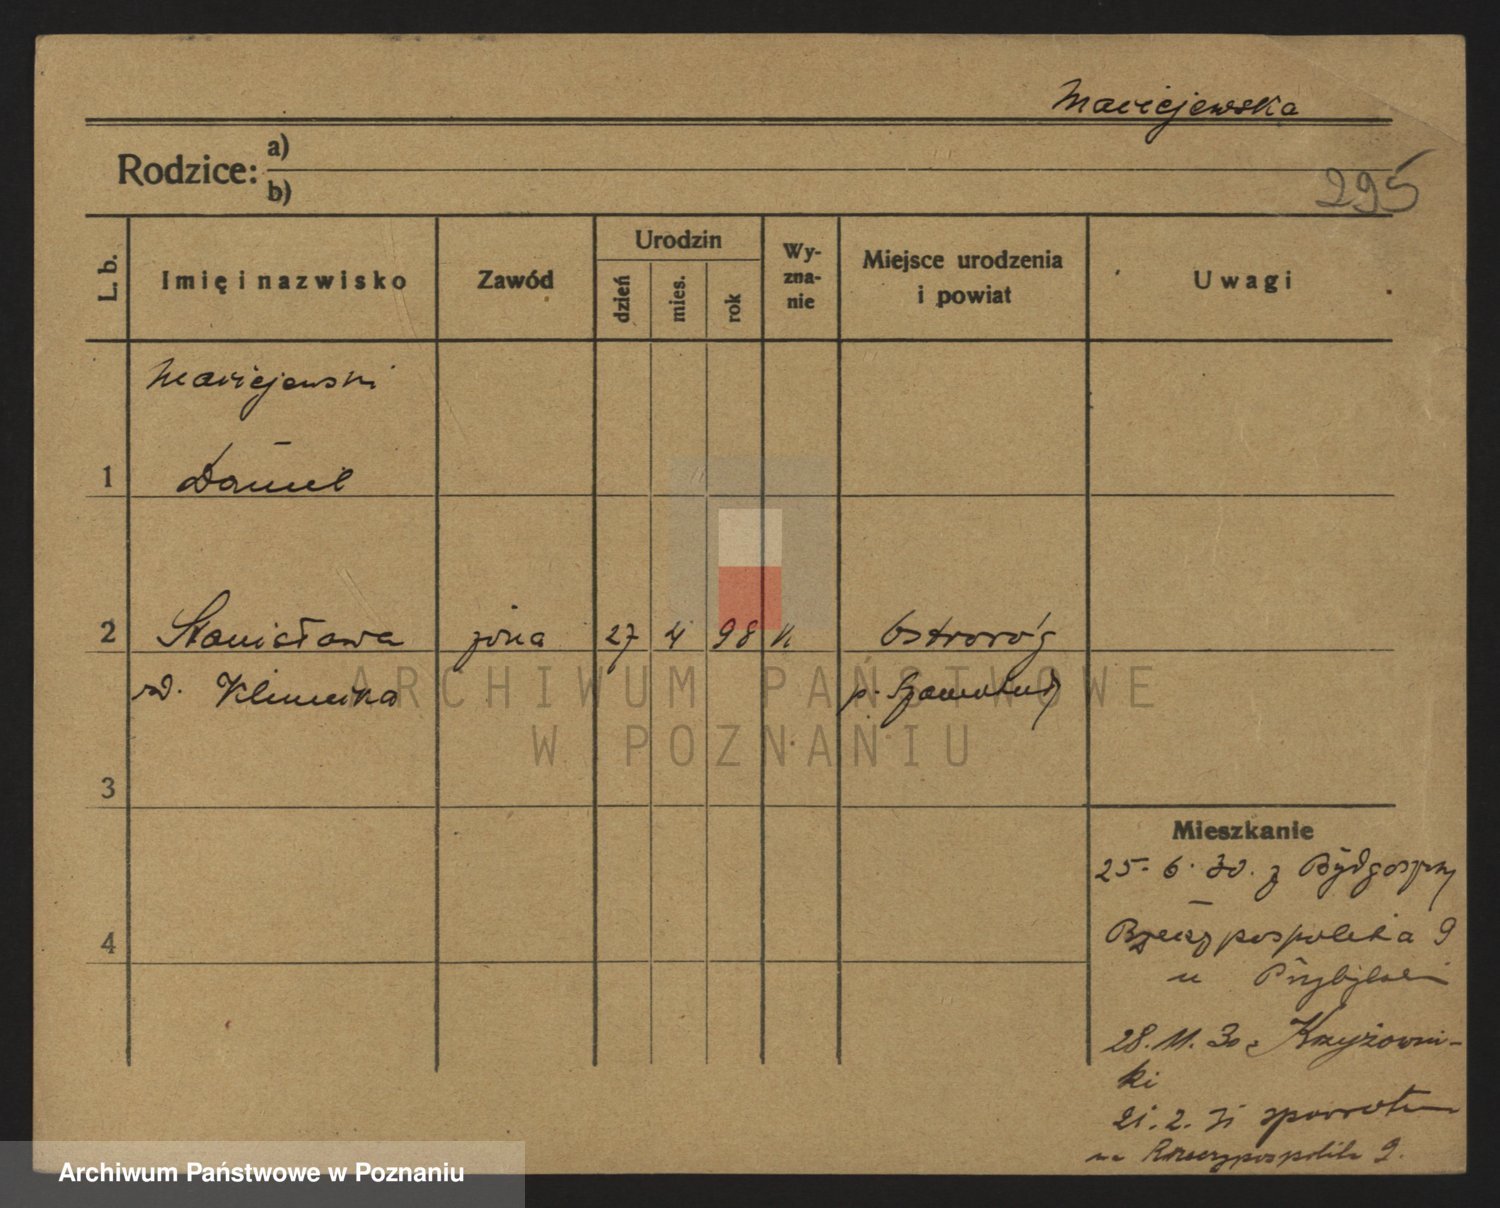 Maciejewska
Rodzice: a)
b)
295
L. b.
Imię i nazwisko
Zawód
Urodzin
dzień
mies.
rok
Wy-
zna-
nie
Miejsce urodzenia
i powiat
Uwagi
Maciejewski
1 Daniel
2 Stanisława żona 27 4 98 k Ostroróg
p. Szamotuły
3
4
Mieszkanie
25. 6. 30. z Bydgoszczy
Rzeczpospolita 9
u
28. 11. 30 Krzyżowni-
ki
21. 2. 31 spowrotem
na Rzeczypospolita 9.
ARCHIWUM PAŃSTWOWE
W POZNANIU
Archiwum Państwowe w Poznaniu